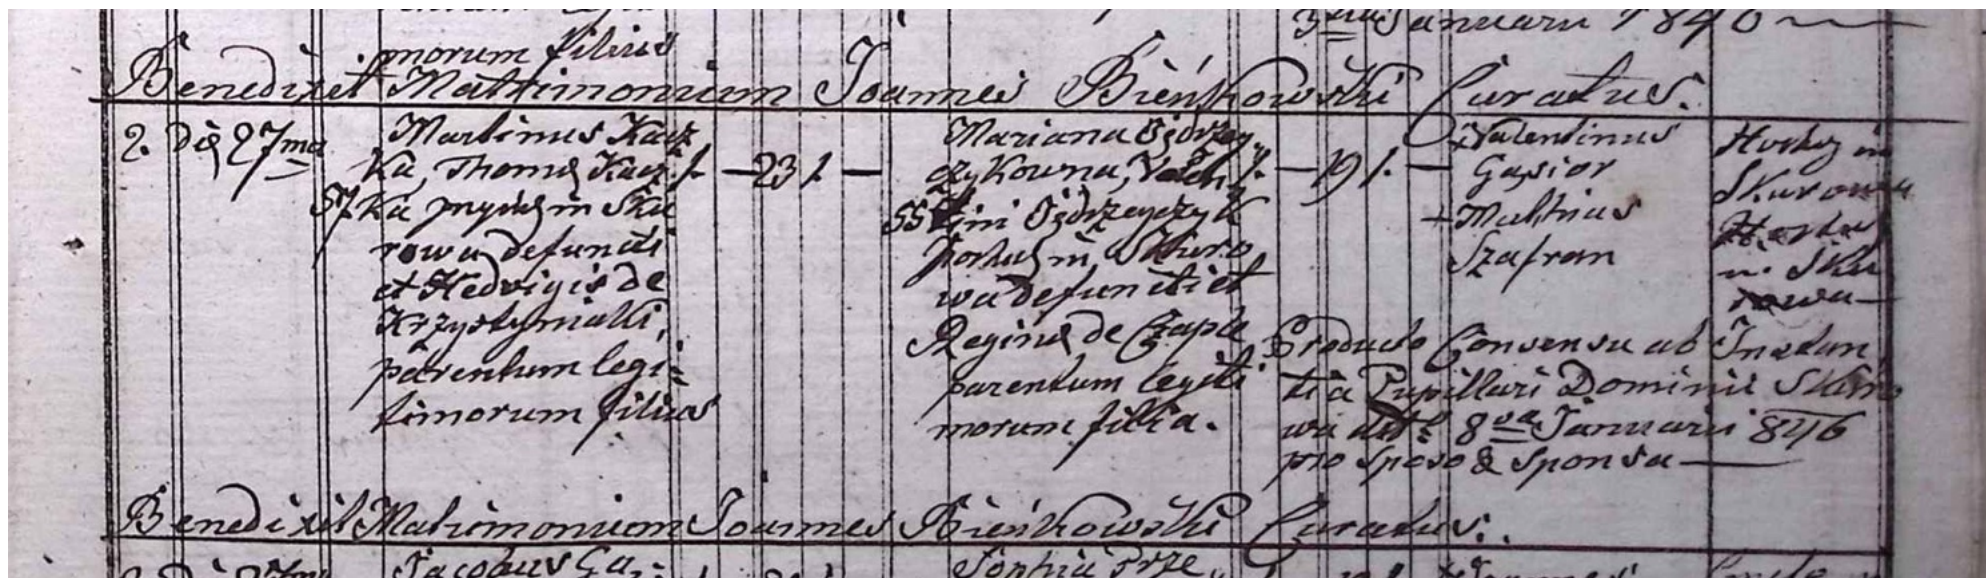 3tia Januarii 1846
morum filius
Benedixit Matrimonium Joannes Bieńkowski Curatus.
2. Die 27ma
57
Martinus Kacz
ka, Thomę Kacz
ka in Sku
rowa defuncti
et Hedvigis de
Krzystyniakki,
parentum legi=
timorum filius
1. — 23 1. —
55
Mariana
czykowna,
tini
in Skuro
wa defuncti et
Reginę de Czapla
parentum legiti
morum filia.
1. — 19 1. —
+ Valentinus
Gąsior
+ Mathias
Szafran
in
Skurowa
in Sku
rowa
Producto Consensu ab Instan
tia Pupillari Dominii Skuro
wa 8va Januarii 846
pro Sposo & Sponsa
Benedixit Matrimonium Joannes Bieńkowski Curatus.
2. Die 27ma
Jacobus Ga
Sophia Prze